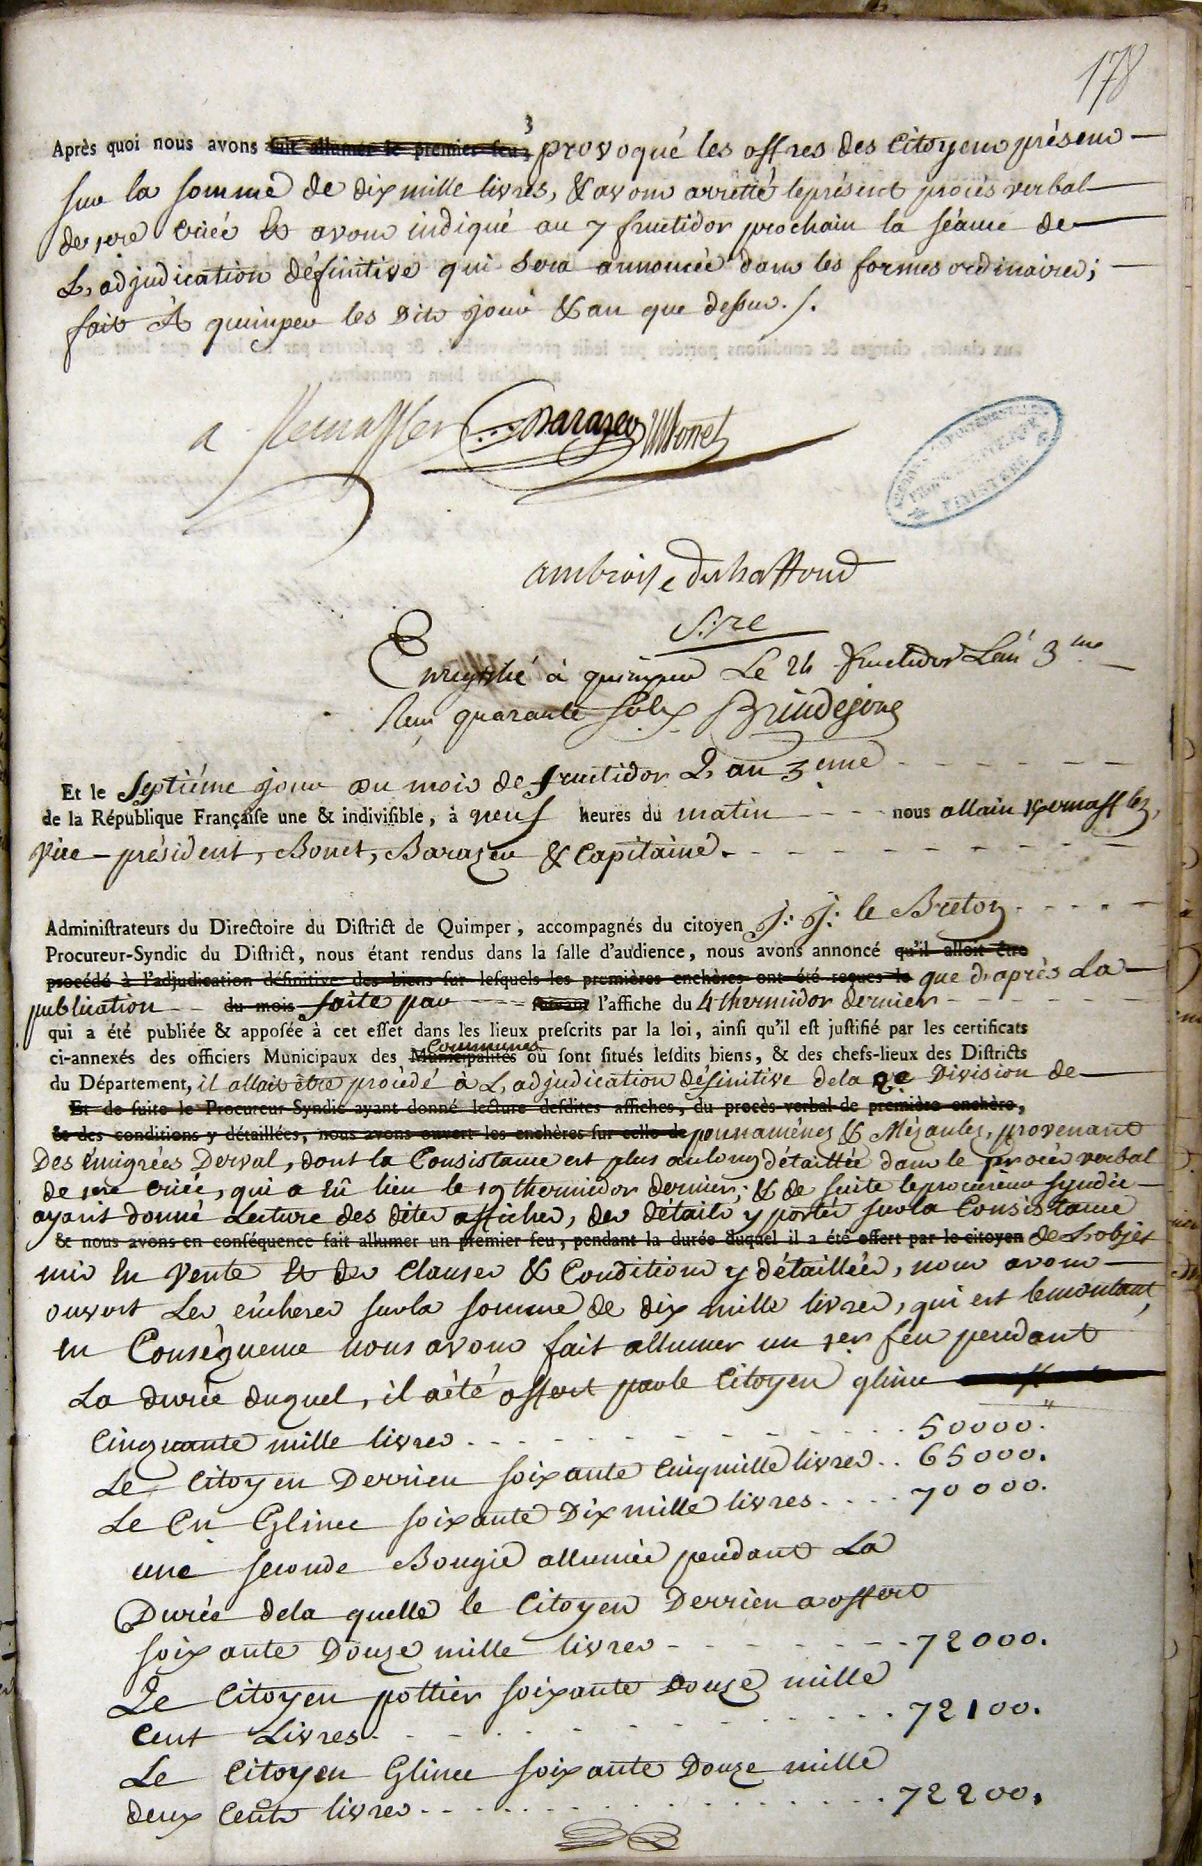 178
Après quoi nous avons fait allumer le premier feu; 3 provoqué les offres des Citoyens présens
sur la somme de dix mille livres, & avons arrêtté le présent procès verbal
de 1ere Criée Et avons indiqué au 7 fructidor prochain la séance de
L'adjudication définitive qui Sera annoncée dans les formes ordinaires;
fait A quimper les Dits jour & an que dessus ./.
a Kernaffler Barazer Bonet
ARCHIVES DÉPARTEMENTALES
FINISTÈRE
ambroise duhaffond
S.re
Enregistré à quimper Le 24 fructidor L'an 3me
Reçu quarante sols Brindejonc
Et le Septiéme jour du mois de fructidor L'an 3eme
de la République Françaiſe une & indiviſible, à neuf heures du matin nous allain Kernafflez,
Vice-président, Bonet, Barazer & Capitaine.
Adminiſtrateurs du Directoire du Diſtrict de Quimper, accompagnés du citoyen J: J: le Breton
Procureur-Syndic du Diſtrict, nous étant rendus dans la ſalle d'audience, nous avons annoncé qu'il alloit être
procédé à l'adjudication définitive des biens ſur leſquels les premières enchères ont été reçues le que d'après La
publication du mois faite par ſuivant l'affiche du 4 thermidor dernier
qui a été publiée & appoſée à cet effet dans les lieux preſcrits par la loi, ainſi qu'il eſt juſtifié par les certificats
Communes
ci-annexés des officiers Municipaux des Municipalités où ſont ſitués leſdits biens, & des chefs-lieux des Diſtricts
du Département, il allait être procédé à L'adjudication définitive de la 2e Division de
Et de ſuite le Procureur-Syndic ayant donné lecture deſdites affiches, du procès-verbal de première enchère,
& des conditions y détaillées, nous avons ouvert les enchères ſur celle de pennamènez & Mézaulez, provenant
Des émigrées Derval, dont la Consistance est plus au long détaillée dans le procès verbal
de 1ere criée, qui a Eû lieu le 19 thermidor dernier; & de suite le procureur syndic
ayant donné Lecture des dites affiches, des détails y portés sur la Consistance
& nous avons en conſéquence fait allumer un premier feu, pendant la durée duquel il a été offert par le citoyen de L'objet
mis En Vente Et des Clauses & Conditions y détaillées, nous avons
ouvert Les enchères sur la somme de dix mille livres, qui est le montant,
en Conséquence nous avons fait allumer un 1er feu pendant
La durée duquel, il a été offert par le Citoyen glinec
Cinquante mille livres . . . . 50000.
Le Citoyen Derrien soixante Cinq mille livres . . 65000.
Le Cn Glinec soixante Dix mille livres . . . . 70000.
une seconde Bougie allumée pendant La
Durée de la quelle le Citoyen Derrien a offert
soixante Douze mille livres - - - - 72000.
Le Citoyen pottier soixante Douze mille
Cent Livres . . . . 72100.
Le Citoyen Glinec soixante Douze mille
deux Cents livres . . . . 72200.